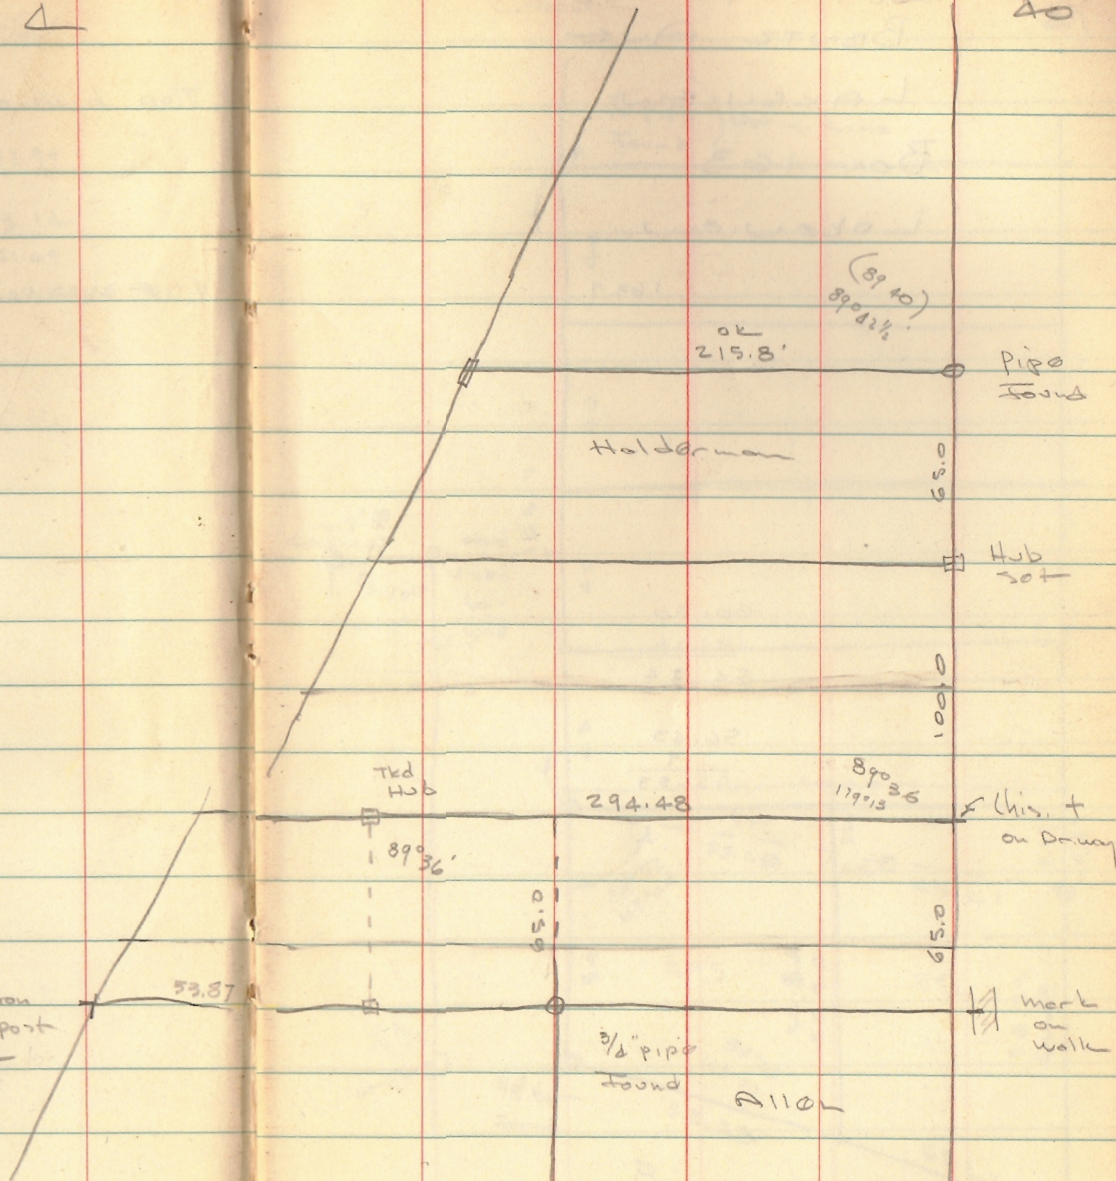 40
(89 40)
89° 42½
ok
215.8'
Pipe
Found
Holderman
65.0
Hub
Set
100.0
Tkd
Hub
294.48
89° 36
179° 13
Chis. +
on Drway
89° 36'
65.0
65.0
53.87
post
mark
on
Walk
3/4" pipe
Found
Allen